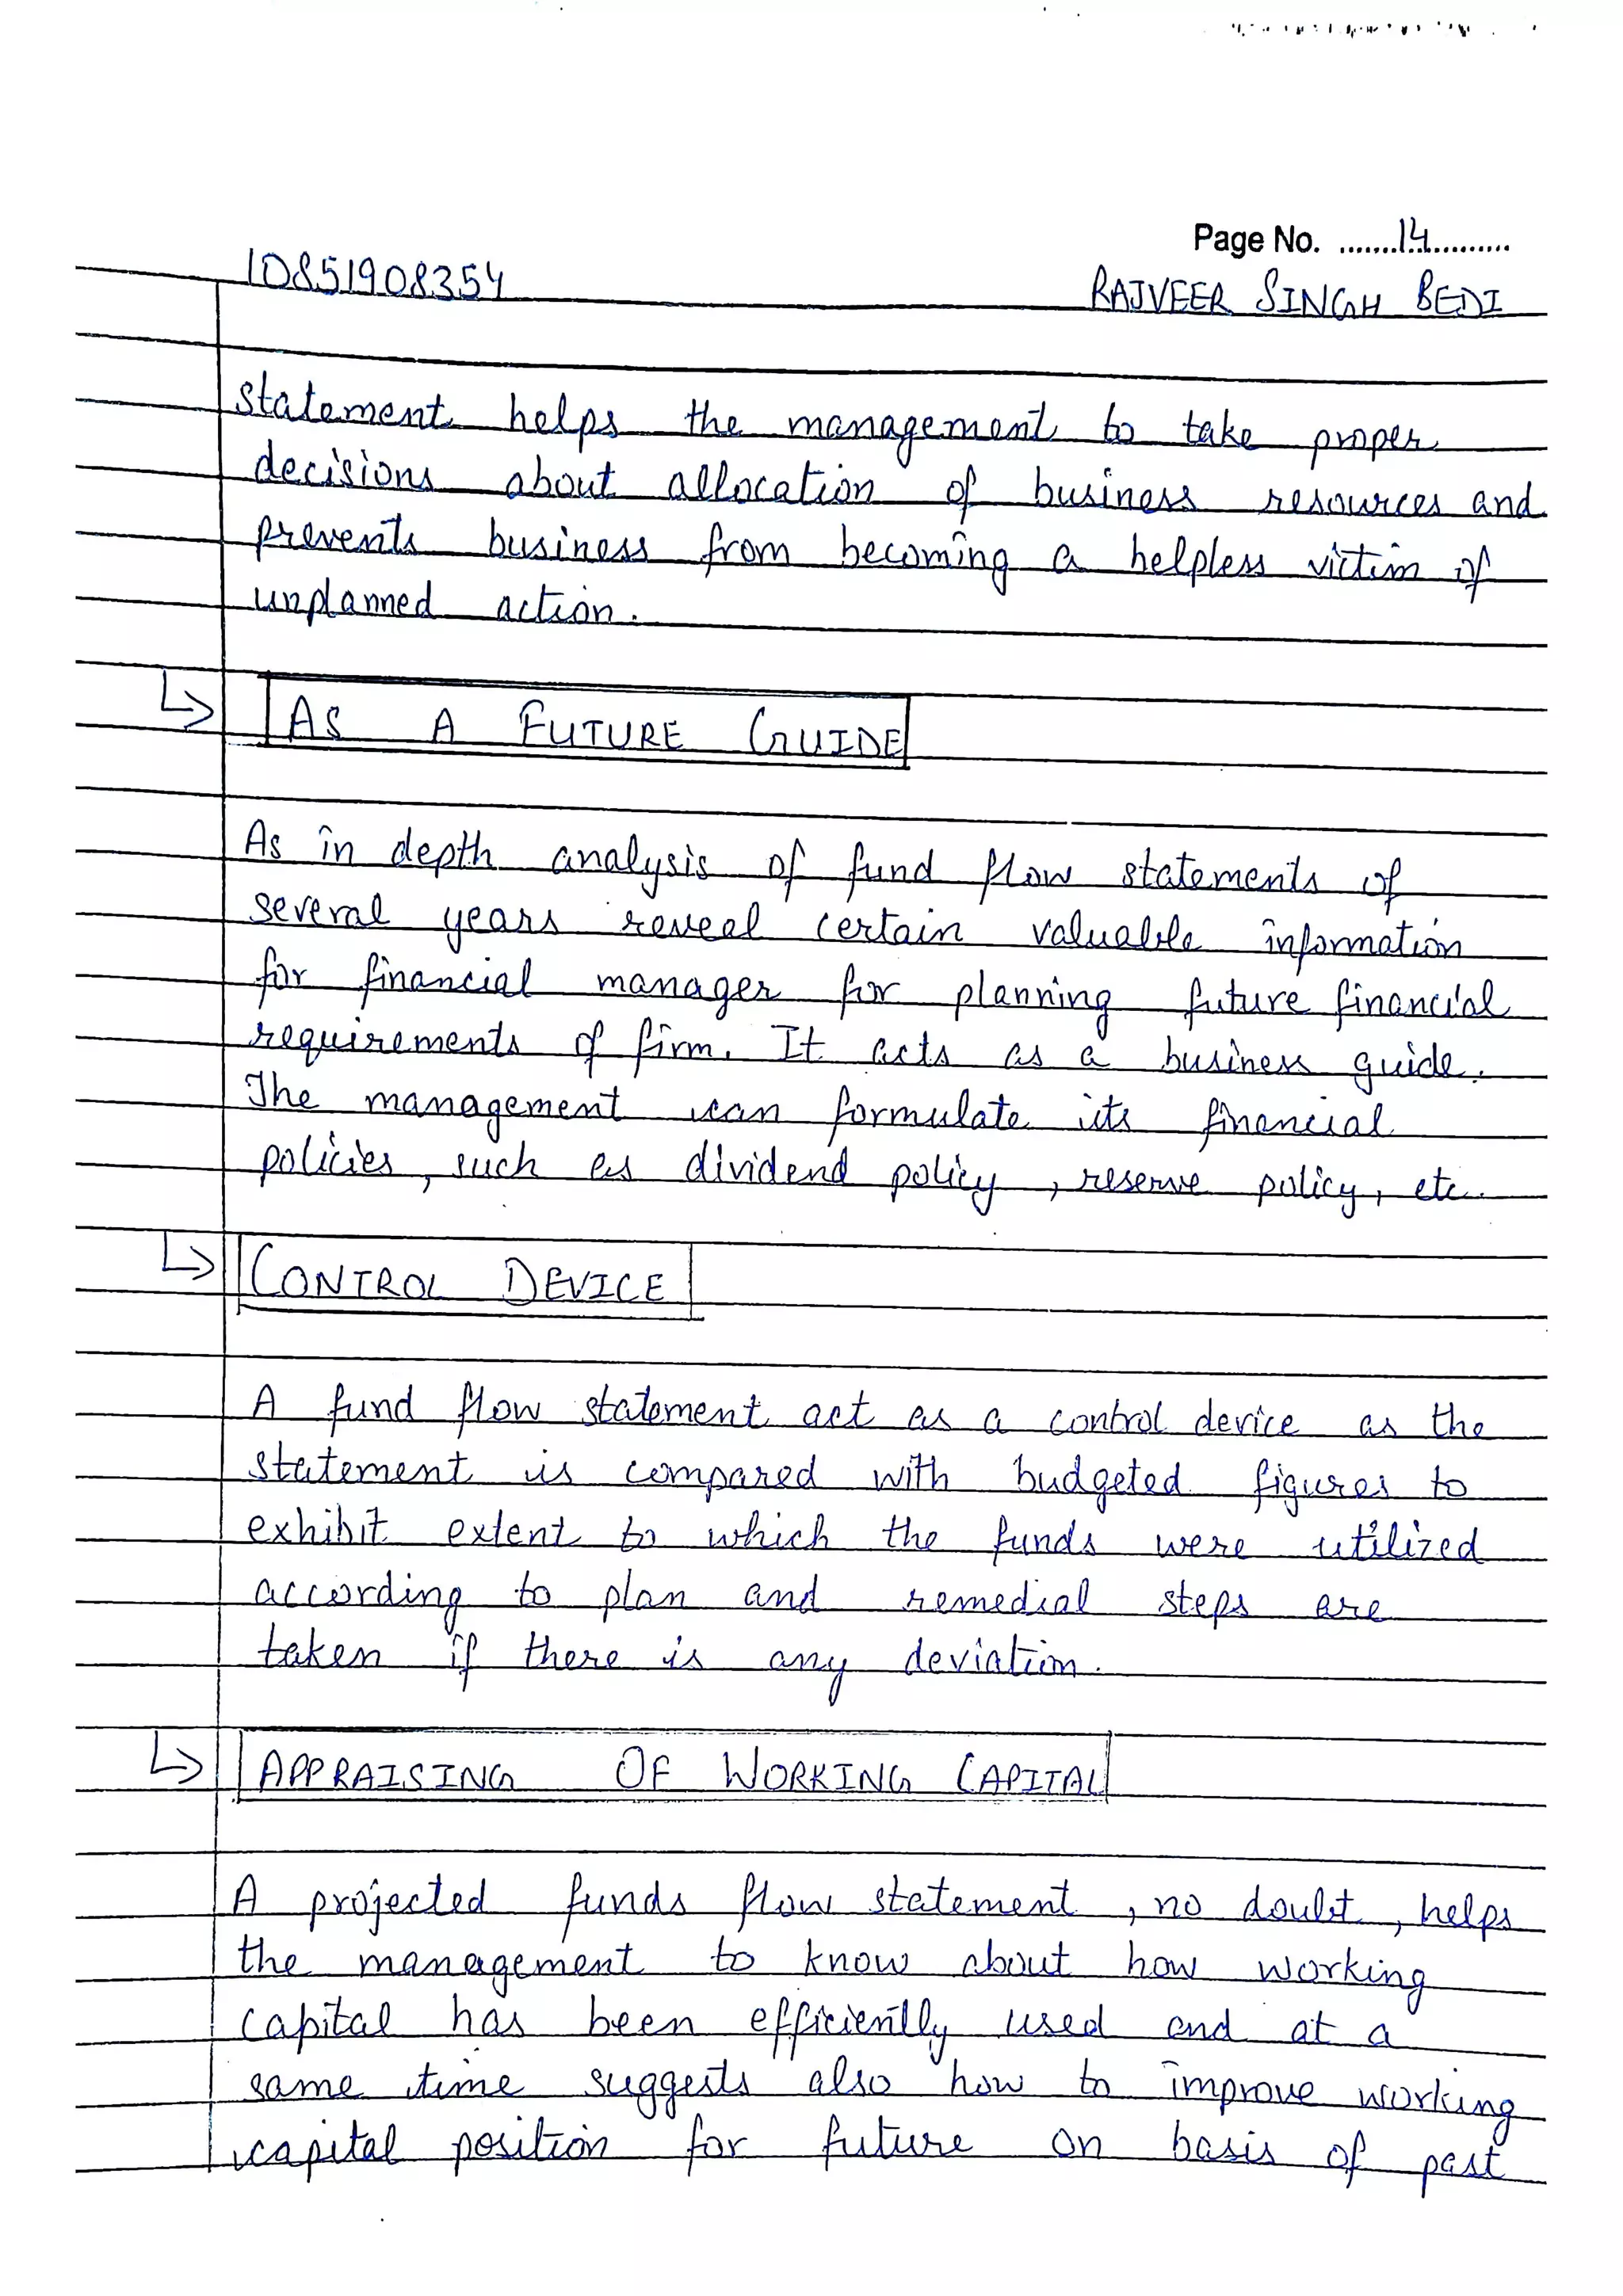 Page No. .......14..........
10851908354
RAJVEER SINGH BEDI
statement helps the management to take proper
decisions about allocation of business resources and
prevents business from becoming a helpless victim of
unplanned action.
↳ AS A FUTURE GUIDE
As in depth analysis of fund flow statements of
several years reveal certain valuable information
for financial manager for planning future financial
requirements of firm. It acts as a business guide.
The management can formulate its financial
policies, such as dividend policy, reserve policy, etc.
↳ CONTROL DEVICE
A fund flow statement act as a control device as the
statement is compared with budgeted figures to
exhibit extent to which the funds were utilized
according to plan and remedial steps are
taken if there is any deviation.
↳ APPRAISING OF WORKING CAPITAL
A projected funds flow statement, no doubt, helps
the management to know about how working
capital has been efficiently used and at a
same time suggests also how to improve working
capital position for future on basis of past